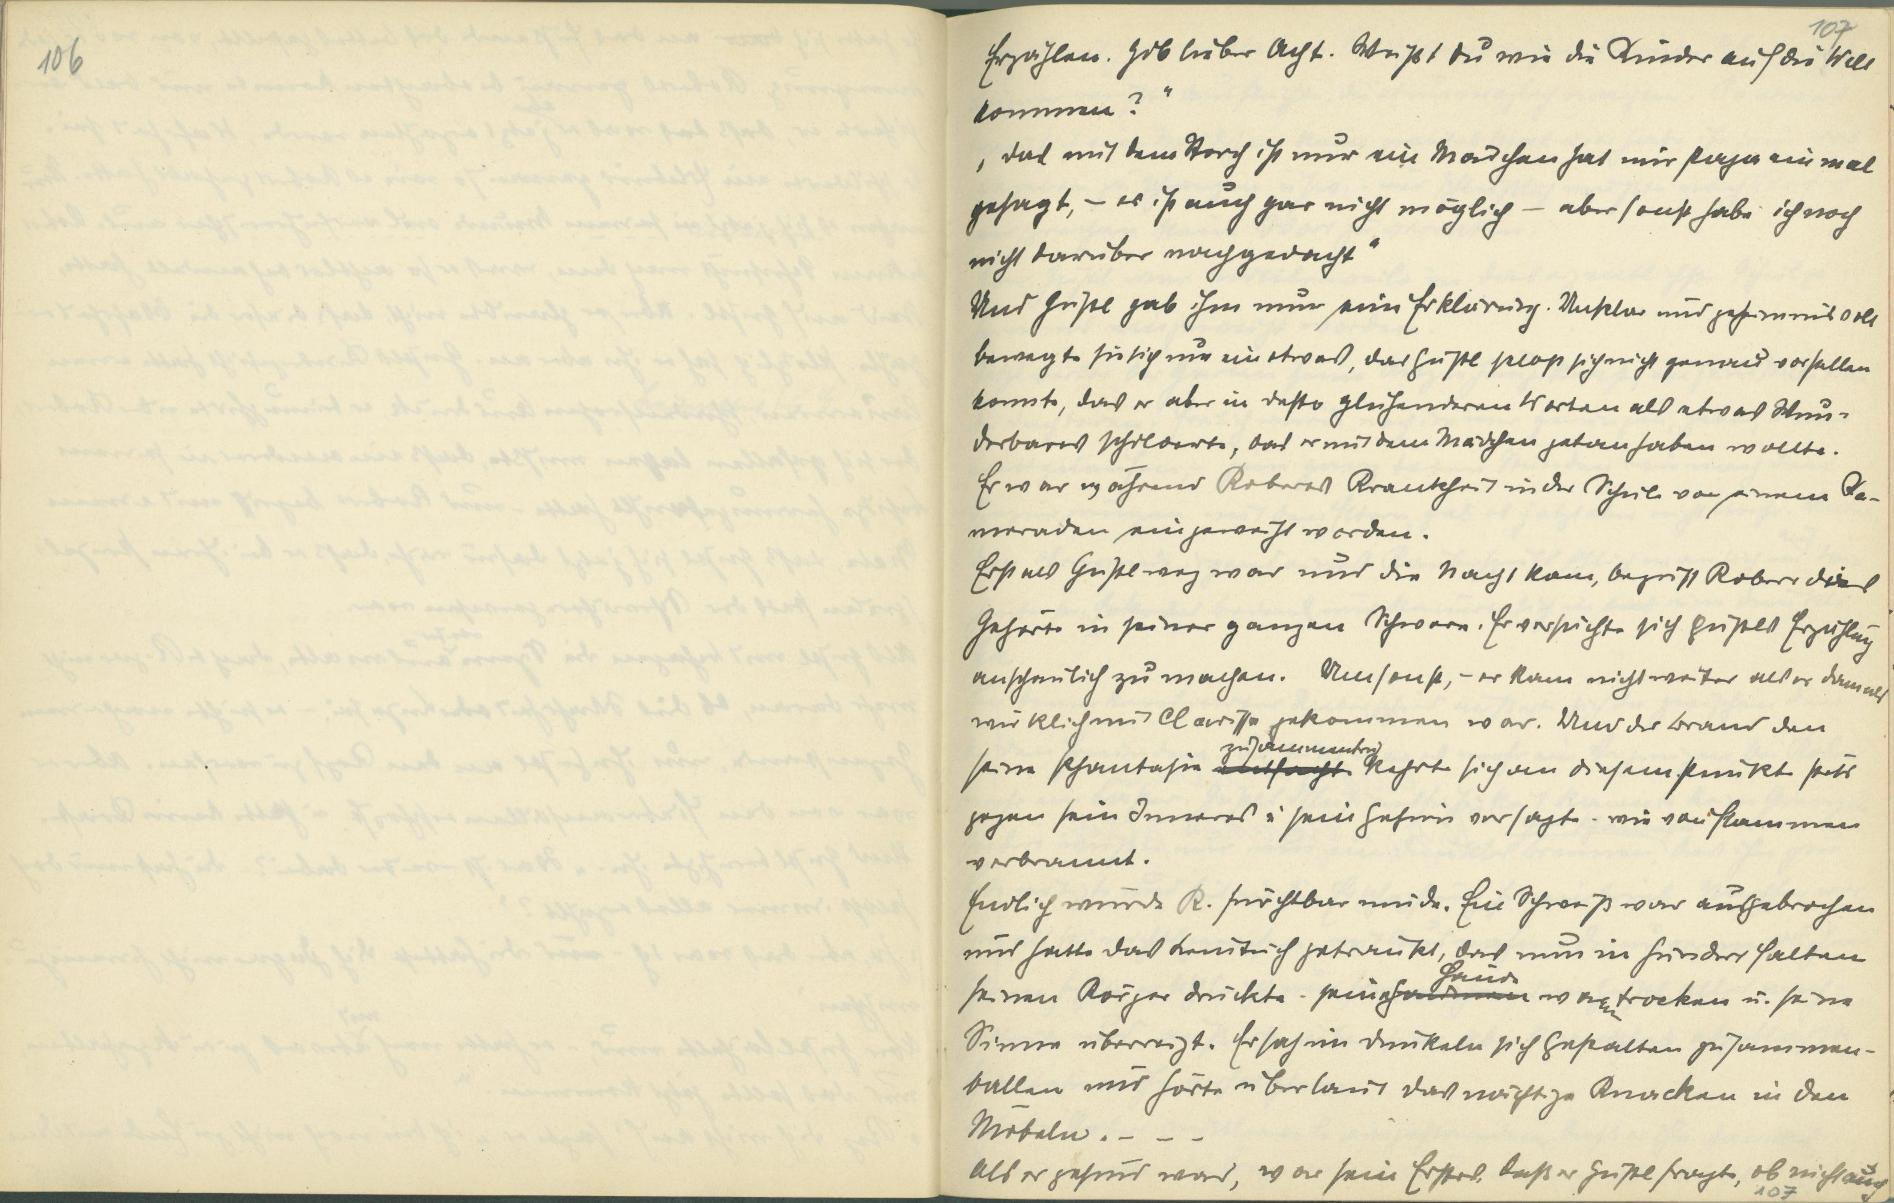 106
107
Erzählen. Gib lieber Acht. Weißt du wie die Kinder auf die Welt
kommen?"
„das mit dem Storch ist nur ein Märchen hat mir Papa einmal
gesagt, – es ist auch gar nicht möglich – aber sonst habe ich noch
nicht darüber nachgedacht"
Und Gustl gab ihm nun eine Erklärung. Unklar und geheimnisvoll
bewegte sie sich um ein etwas, das Gustl selbst sich nicht genau vorstellen
konnte, das er aber in desto glühenderen Worten als etwas Wun-
derbares schilderte, das er mit dem Mädchen getan haben wollte.
Er war während Roberts Krankheit in der Schule von einem Ka-
meraden eingeweiht worden.
Erst als Gustl weg war und die Nacht kam, begriff Robert das
Gehörte in seiner ganzen Schwere. Er versuchte sich Gustls Erzählung
anschaulich zu machen. Umsonst, – er kam nicht weiter als er damals
wirklich mit Clarisse gekommen war. Und der Brand den
zusammentrug
seine Phantasie entfacht kehrte sich an diesem Punkte stets
gegen sein Inneres u sein Gehirn versagte – wie von Flammen
verbrannt.
Endlich wurde R. furchtbar müde. Ein Schweiß war ausgebrochen
und hatte das Leintuch getränkt, das nun in hundert Falten
Hände
seinen Körper drückte – seine waren trocken u. seine
Sinne überreizt. Er sah im Dunkeln sich Gestalten zusammen-
ballen und hörte überlaut das nächtige Knacken in den
Möbeln. – – –
Als er gesund ward, war sein Erstes, daß er Gustl fragte, ob nicht auch
107